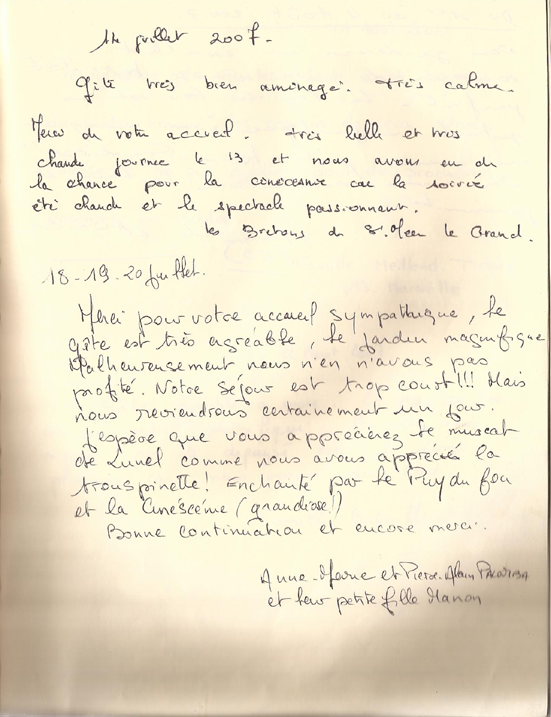 14 juillet 2007.
Gîte très bien aménagé. très calme.
Merci de votre accueil. très belle et très
chaude journée le 13 et nous avons eu de
la chance pour la cinéscénie car la soirée
été chaude et le spectacle passionnant.
les Bretons de St. Méen le Grand.
18-19-20 Juillet.
Merci pour votre accueil sympathique, le
gîte est très agréable, le jardin magnifique
Malheureusement nous n'en n'avons pas
profité. Notre séjour est trop court!!! Mais
nous reviendrons certainement un jour.
J'espère que vous apprécierez le muscat
de Lunel comme nous avons apprécié la
trouspinette! Enchanté par le Puy du fou
et la Cinéscénie (grandiose!)
Bonne continuation et encore merci.
Anne-Marie et Pierre-Alain
et leur petite fille Manon